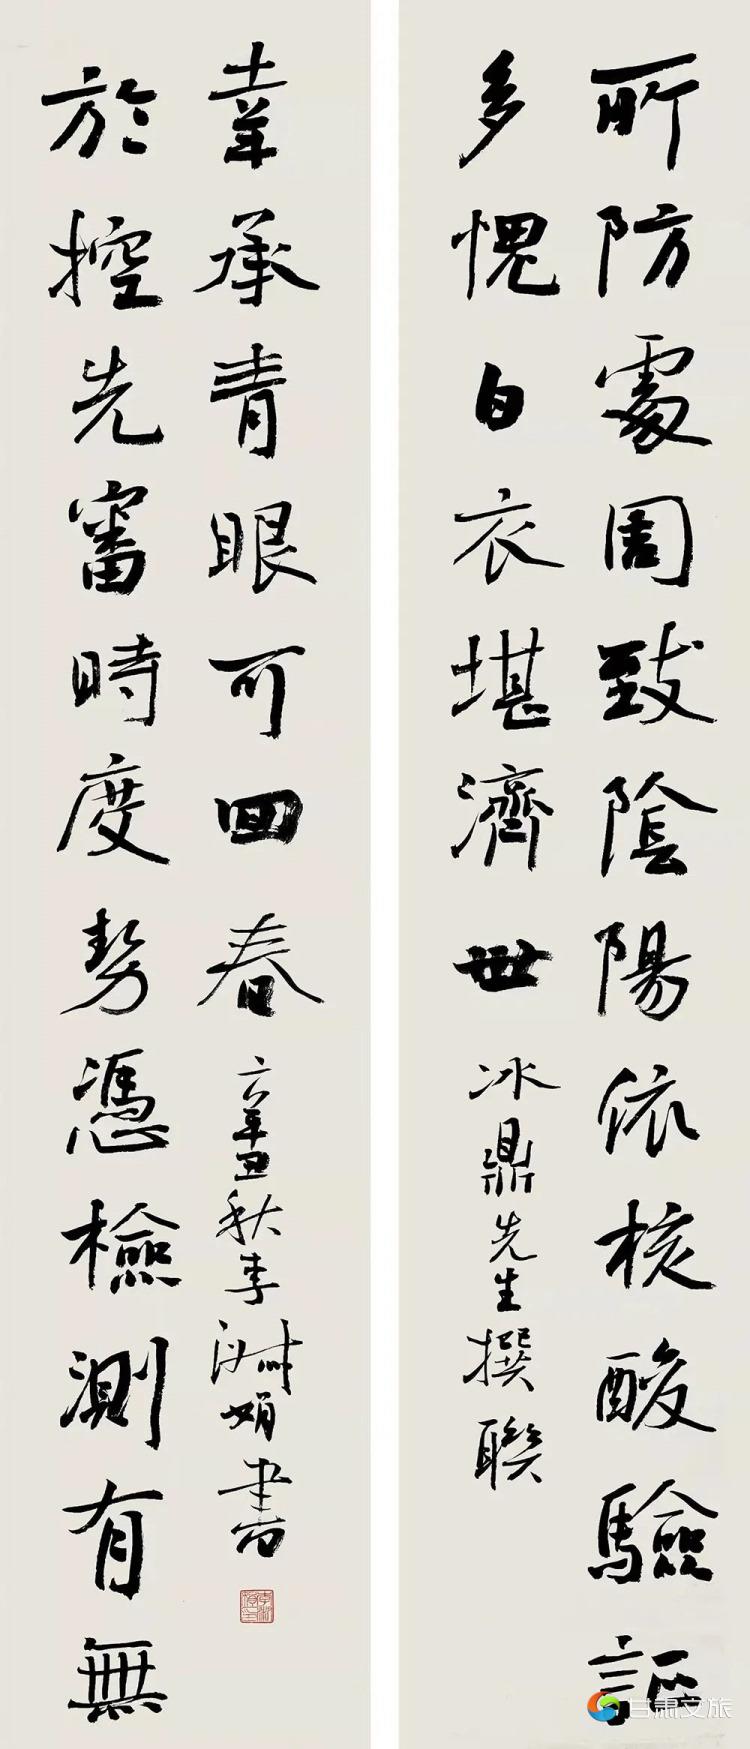 所防處周致陰陽依核酸驗証
多愧白衣堪濟世 冰鼎先生撰聯
於控先審時度勢憑檢測有無
幸承青眼可回春 辛丑秋李淑娟書
甘肃文旅